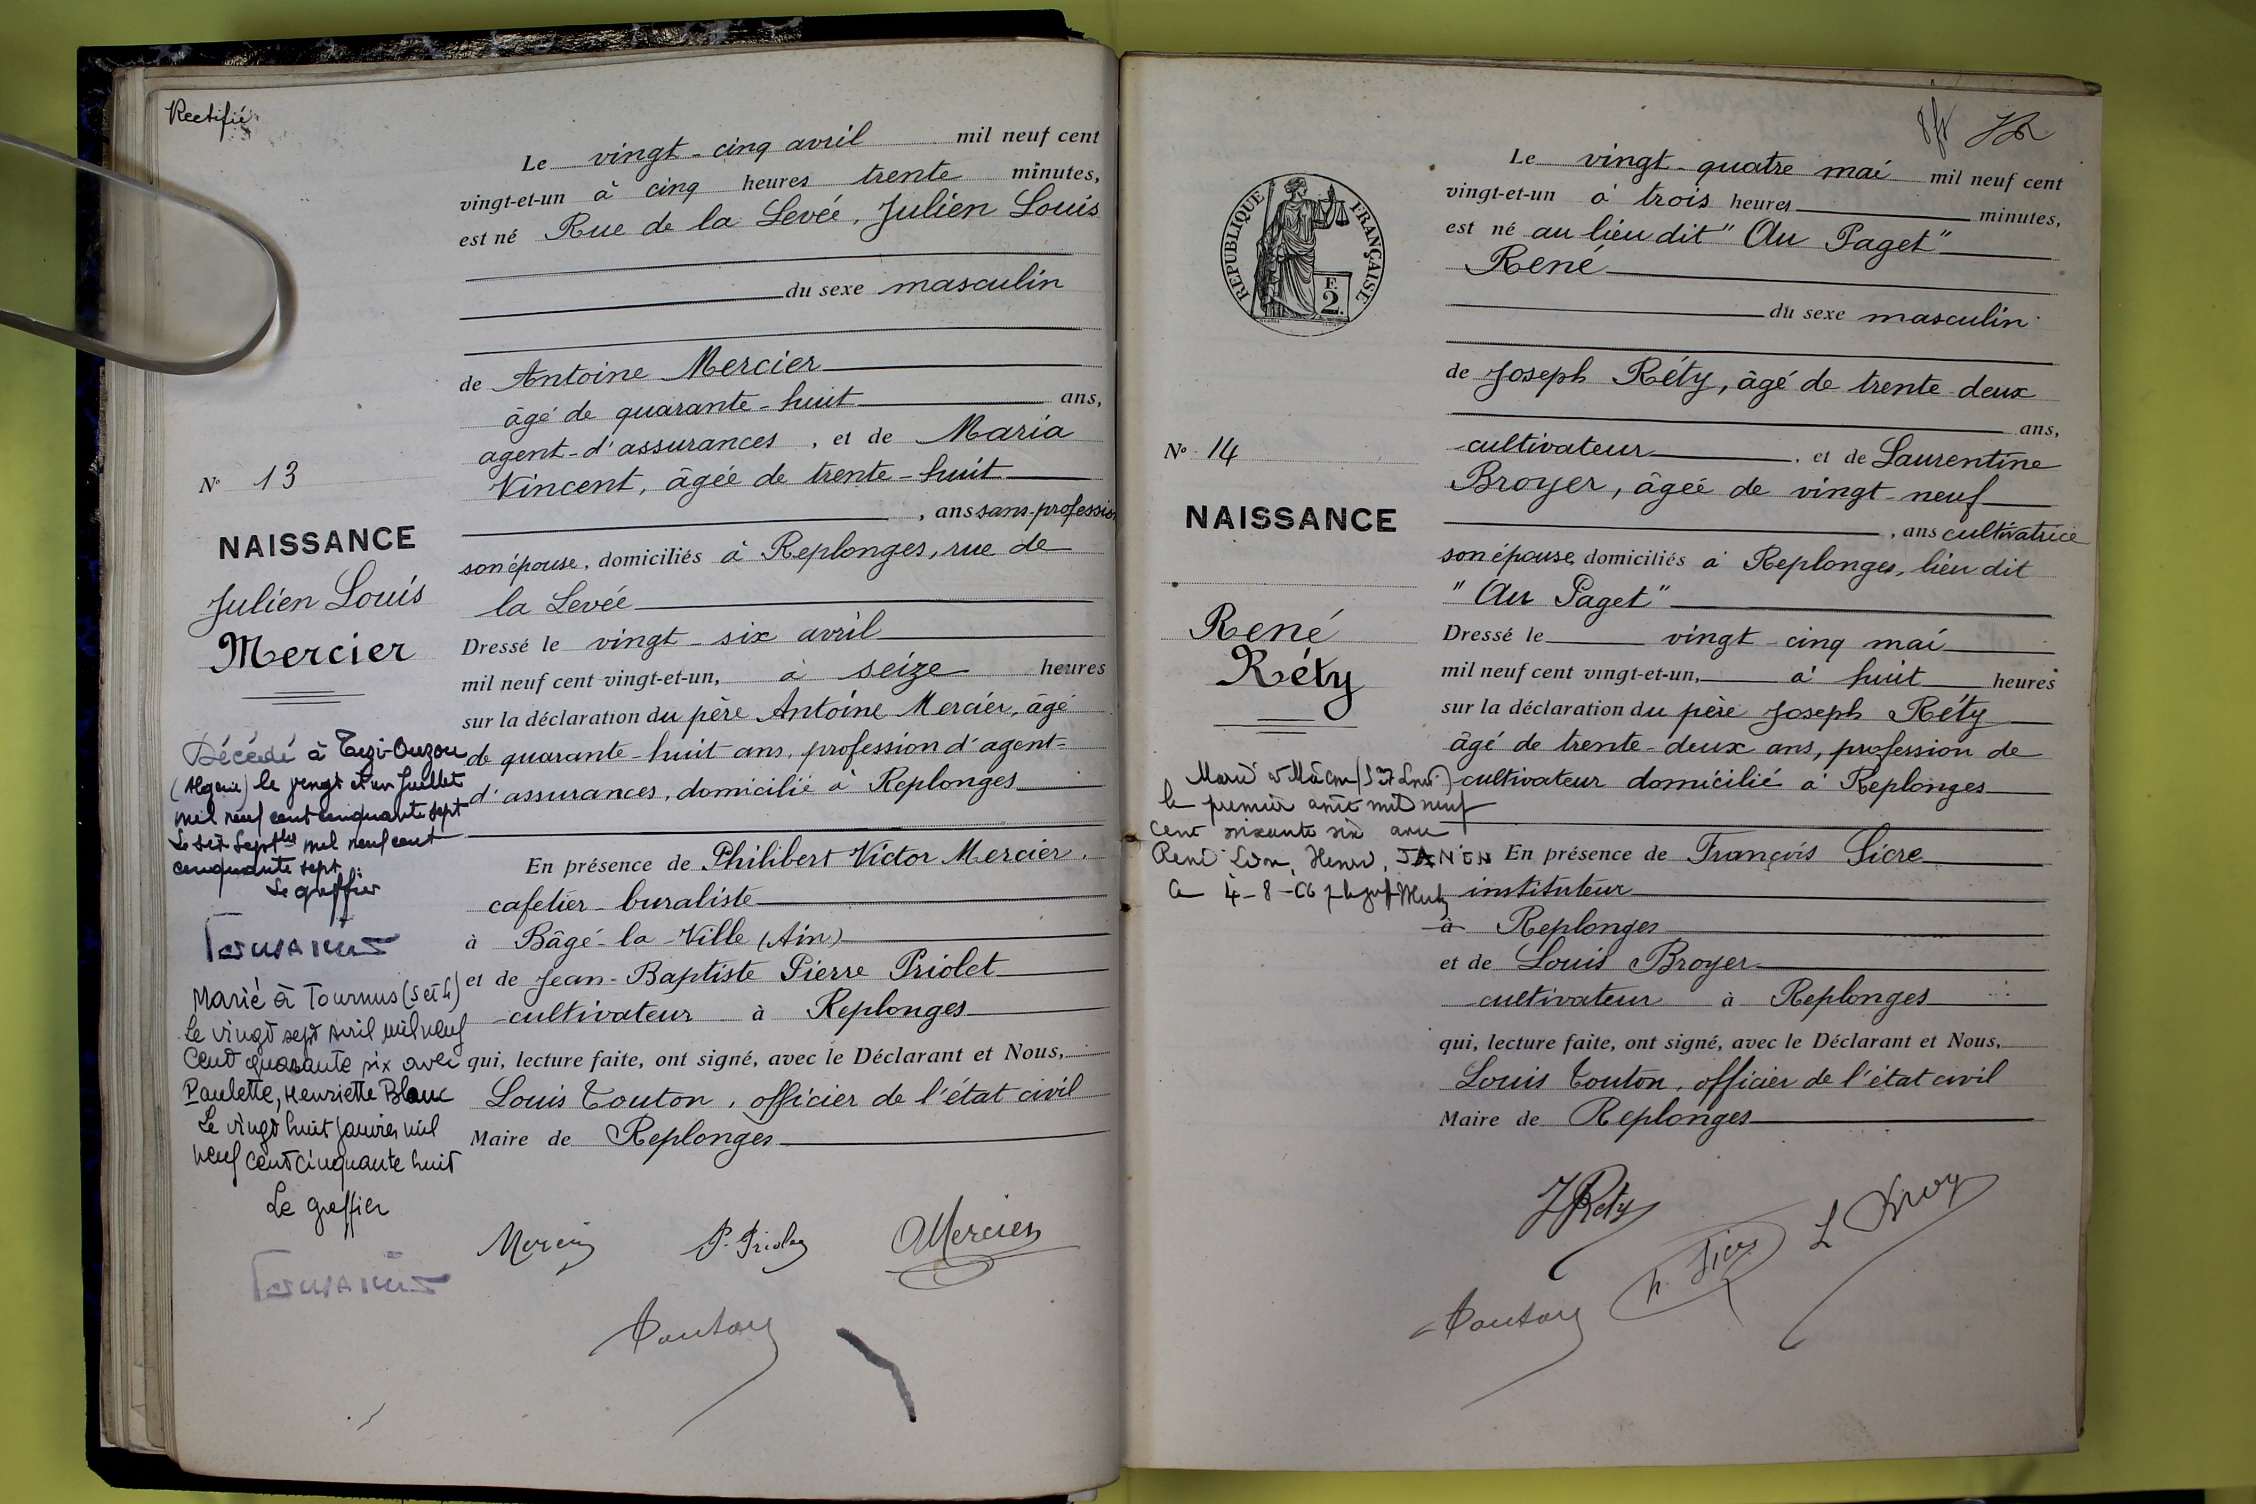 Rectifié
Le vingt-cinq avril mil neuf cent
vingt-et-un à cinq heures trente minutes,
est né Rue de la Levée, Julien Louis
du sexe masculin
de Antoine Mercier
âgé de quarante-huit ans,
agent-d'assurances, et de Maria
Vincent, âgée de trente-huit
, ans sans-profession
son épouse, domiciliés à Replonges, rue de
la Levée
Dressé le vingt-six avril
mil neuf cent vingt-et-un, à seize heures
sur la déclaration du père Antoine Mercier, âgé
de quarante-huit ans, profession d'agent-
d'assurances, domicilié à Replonges
En présence de Philibert Victor Mercier,
cafetier-buraliste
à Bâgé-la-Ville (Ain)
et de Jean-Baptiste Pierre Priolet
cultivateur à Replonges
qui, lecture faite, ont signé, avec le Déclarant et Nous,
Louis Touton, officier de l'état civil
Maire de Replonges
Mercier P. Priolet AMercier
Touton
No 13
NAISSANCE
Julien Louis
Mercier
Décédé à Tizi-Ouzou
(Algérie) le vingt et un Juillet
mil neuf cent cinquante sept
Le six Septbre mil neuf cent
cinquante sept.
Le greffier
Marié à Tournus (S et L)
Le vingt sept Avril mil neuf
Cent quarante six avec
Paulette, Henriette Blanc
Le vingt huit Janvier mil
neuf cent cinquante huit
Le greffier
RÉPUBLIQUE FRANÇAISE
F.
2.
Le vingt-quatre mai mil neuf cent
vingt-et-un à trois heures minutes,
est né au lieu dit "Au Paget"
René
du sexe masculin
de Joseph Réty, âgé de trente-deux
ans,
cultivateur, et de Laurentine
Broyer, âgée de vingt-neuf
, ans cultivatrice
son épouse, domiciliés à Replonges, lieu dit
"Au Paget"
Dressé le vingt-cinq mai
mil neuf cent vingt-et-un, à huit heures
sur la déclaration du père Joseph Réty
âgé de trente-deux ans, profession de
cultivateur domicilié à Replonges
En présence de François Sicre
instituteur
à Replonges
et de Louis Broyer
cultivateur à Replonges
qui, lecture faite, ont signé, avec le Déclarant et Nous,
Louis Touton, officier de l'état civil
Maire de Replonges
JRéty
F. Sicre L Broy
Touton
No 14
NAISSANCE
René
Réty
Marié à Mâcon
le premier août mil neuf
cent soixante six avec
JANIN
Le 4-8-66